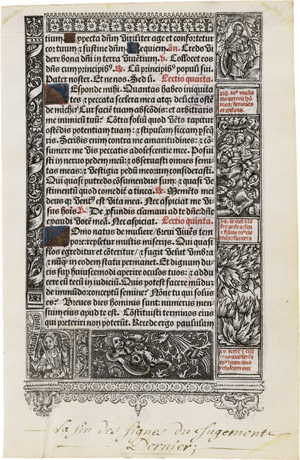 tium. Expecta dñm viriliter age et confortetur
cor tuum & sustine dñm. Requiem. añ. Credo vi
dere bona dñi in terra viuētium. Collocet eos
dñs cum principibꝰ. Cū principibꝰ populi sui.
Pater noster. Et ne nos. Sed li. Lectio quarta.
Responde mihi. Quantas habeo iniquita
tes & peccata scelera mea atqꝫ delicta ostēde
michi. Cur faciē tuam abscōdis: et arbitraris
me inimicū tuū? Cōtra foliū quod vēto rapitur
ostēdis potentiam tuam: & stipulam siccam ꝑseq̄
ris. Scribis enim contra me amaritudines: & cō
sumere me vis peccatis adolescentie mee. Po
sui sti in neruo pedem meū: & obseruasti omnes semi
tas meas: & vestigia pedū meorum considerasti.
Qui quasi putredo cōsumendus sum: & quasi ve
stimentū quod comedit a tinea. Memēto mei
deus qꝛ ventꝰ est vita mea. Nec aspiciat me vi
sus hoīs. De ꝓfundis clamaui ad te dñe: dñe
exaudi vocē meā. Nec aspiciat. Lectio quinta.
Homo natus de muliere / breui viuēs tem
pore: repletur multis miseriis. Qui quasi
flos egreditur et cōteritur / & fugit velut vmbra
& nūqꝫ in eodem statu permanet. Et dignum du
cis suꝑ huiuscemodi aperire oculos tuos: & addu
cere eū tecū in iudiciū. Quis potest facere mūdū
de immūdo cōceptū semine? Nōne tu qui solus
es? Breues dies hominis sunt: numerus men
sium eius apud te est. Cōstituisti terminos eius
qui preteriri non poterūt. Recede ergo paululum
La fin des signes du Jugement
Dernier;